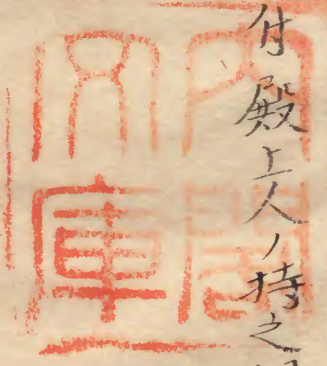 付殿上人ノ持之
内閣文庫